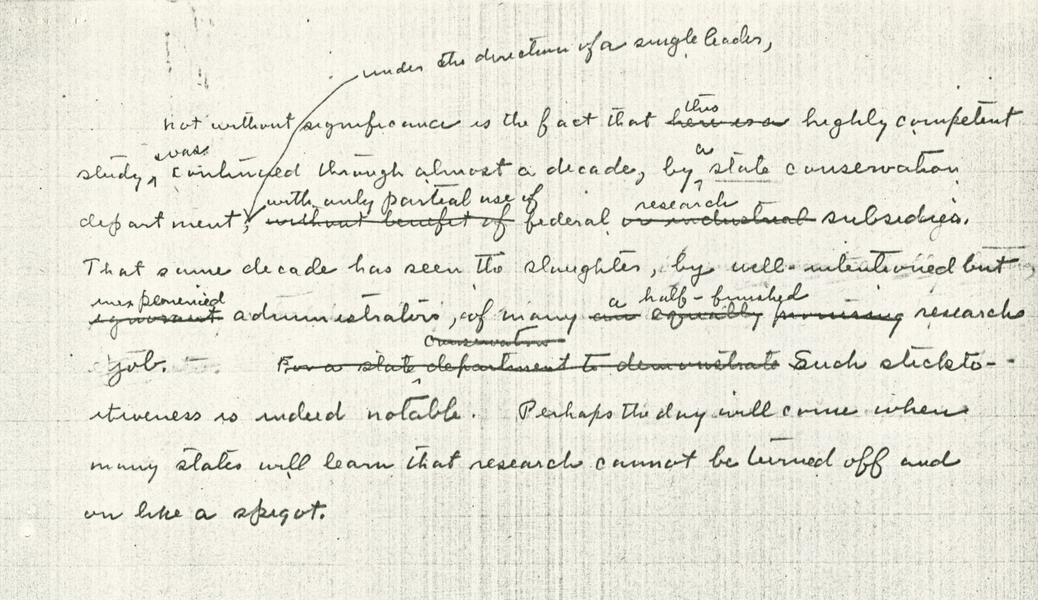 under the direction of a single leader,
this
not without significance is the fact that here is a highly competent
was a
study, continued through almost a decade, by state conservation
with only partial use of research
department, without benefit of federal or industrial subsidies.
That same decade has seen the slaughter, by well-intentioned but
inexperienced a half-finished
ignorant administrators, of many an equally promising research
job.
conservation
For a state department to demonstrate Such stickto-
itiveness is indeed notable. Perhaps the day will come when
many states will learn that research cannot be turned off and
on like a spigot.